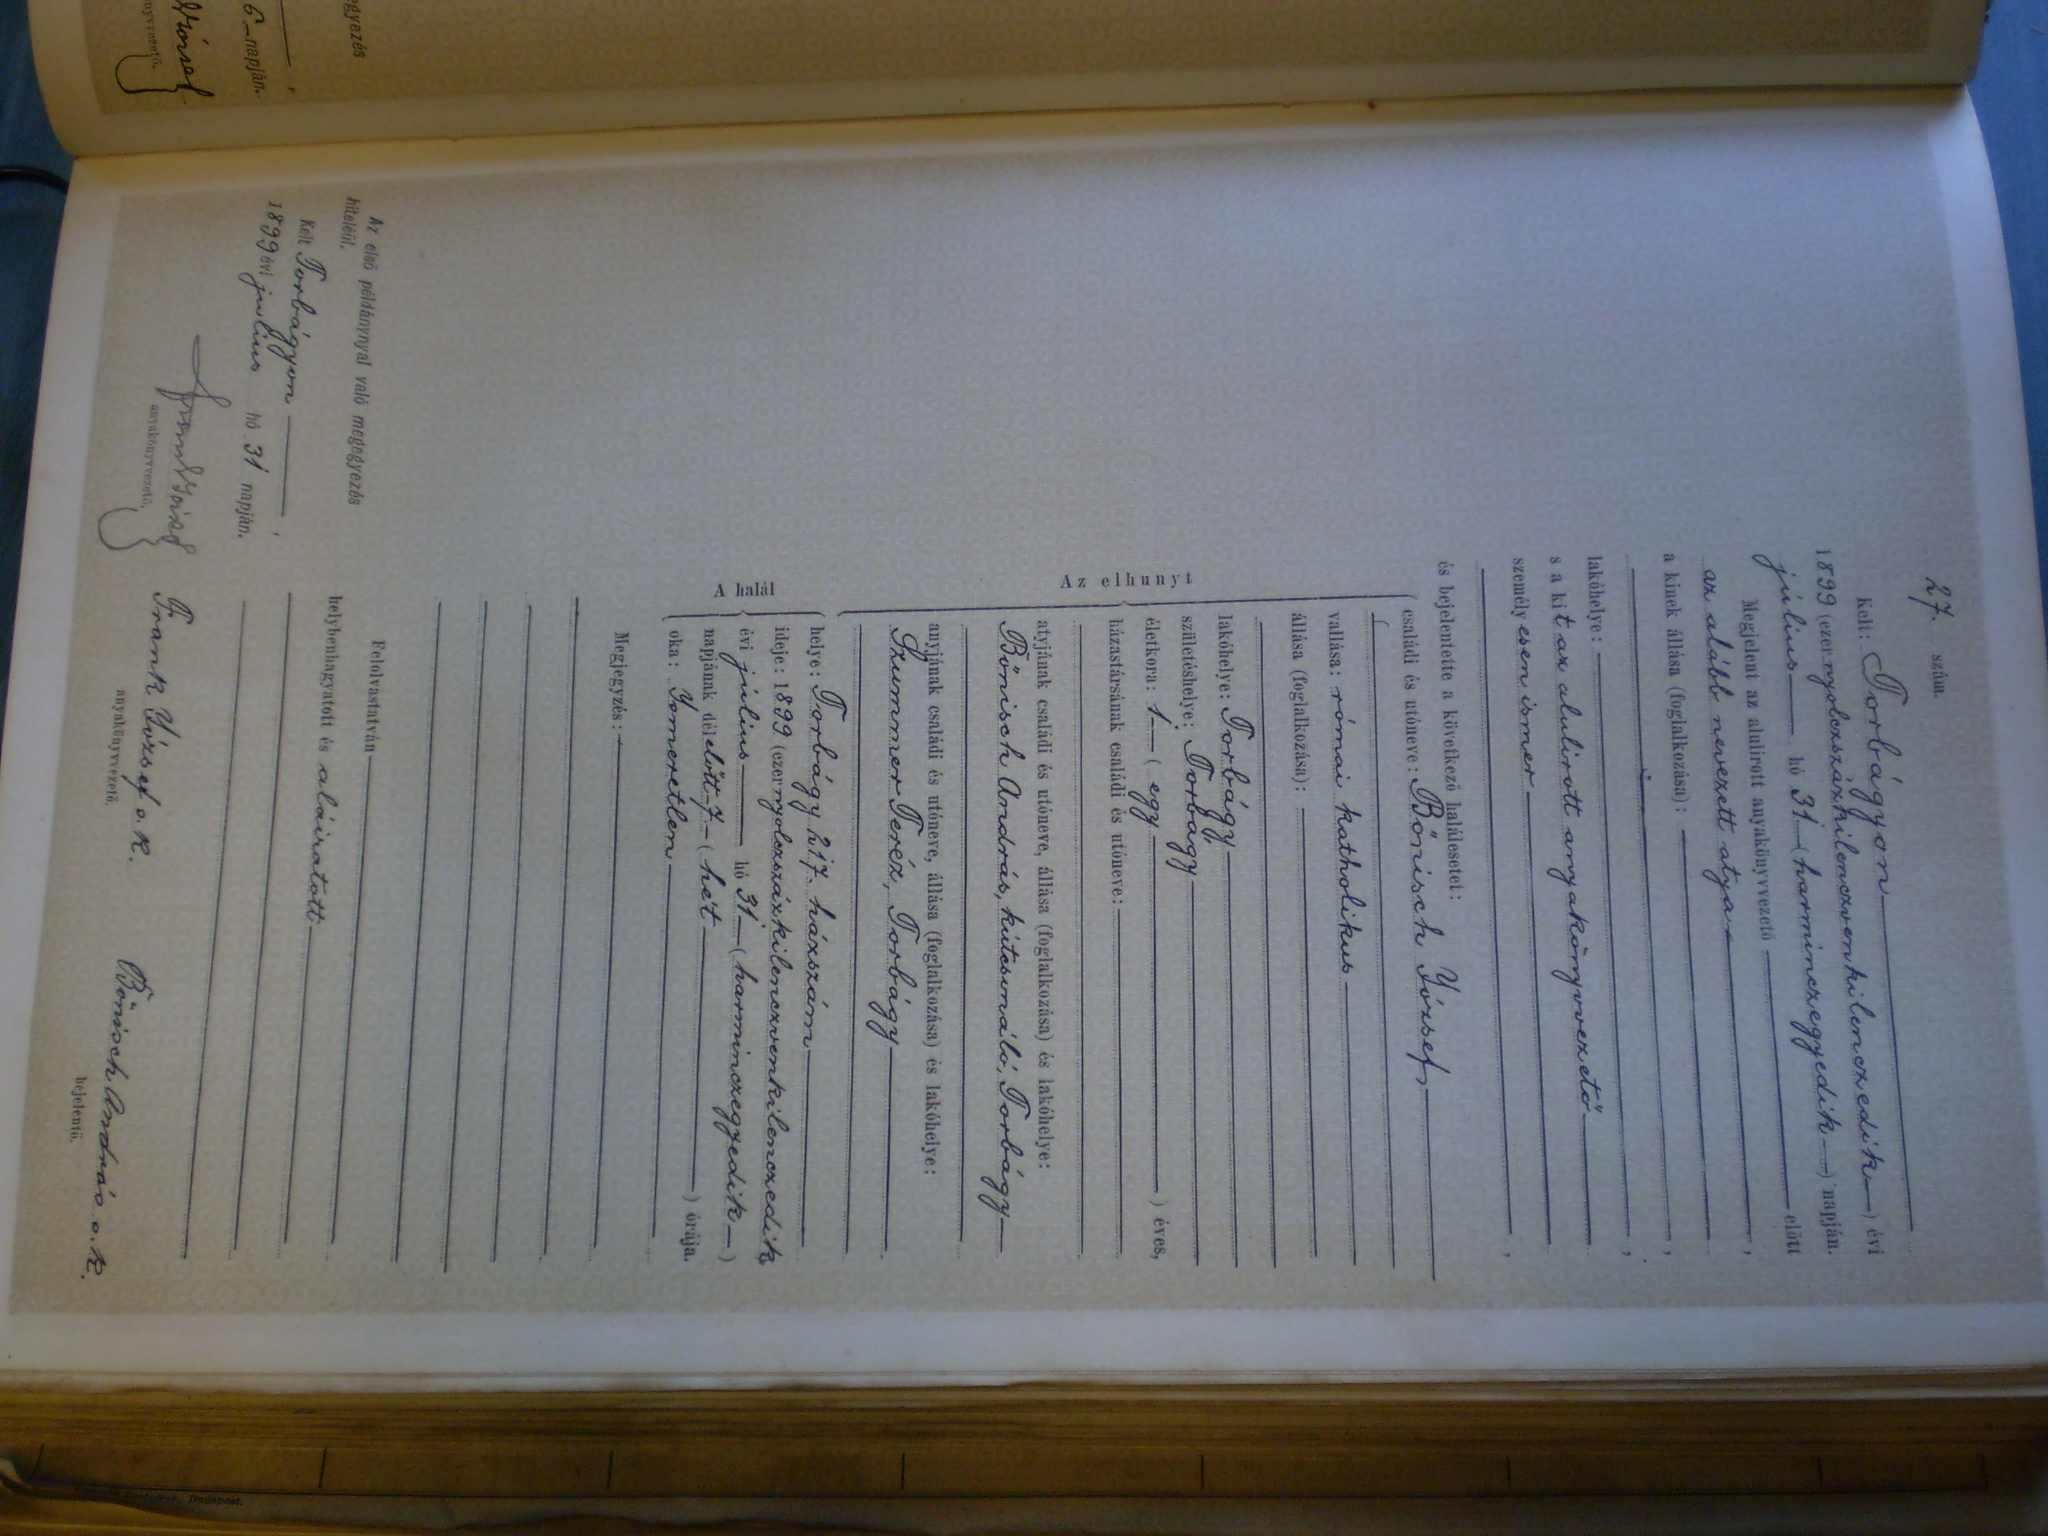 27. szám.
Kelt: Torbágyon
1899 (ezer nyolczszázkilenczvenkilenczedik) évi
július hó 31 (harminczegyedik) napján.
Megjelent az alulirott anyakönyvvezető előtt
az alább nevezett atya
a kinek állása (foglalkozása):
lakóhelye:
s a kit az alulirott anyakönyvvezető
személyesen ismer
és bejelentette a következő halálesetet:
Az elhunyt
családi és utóneve: Bönisch József,
vallása: római katholikus
állása (foglalkozása):
lakóhelye: Torbágy
születéshelye: Torbágy
életkora: 1 (egy) éves,
házastársának családi és utóneve:
atyjának családi és utóneve, állása (foglalkozása) és lakóhelye:
Bönisch András, kútcsináló, Torbágy
anyjának családi és utóneve, állása (foglalkozása) és lakóhelye:
Szummer Teréz, Torbágy
A halál
helye: Torbágy 217. házszám
ideje: 1899 (ezer nyolczszázkilenczvenkilenczedik
évi július hó 31 (harminczegyedik)
napjának délelőtt 7 (hét) órája.
oka: Ismeretlen
Megjegyzés:
Felolvastatván
helybenhagyatott és aláiratott
Frank József s. k.
anyakönyvvezető.
Bönisch András s. k.
bejelentő.
Az első példánynyal való megegyezés
hiteléül.
Kelt Torbágyon,
1899 évi július hó 31 napján.
Frank József
anyakönyvvezető.
6 napján.
József
Budapest.